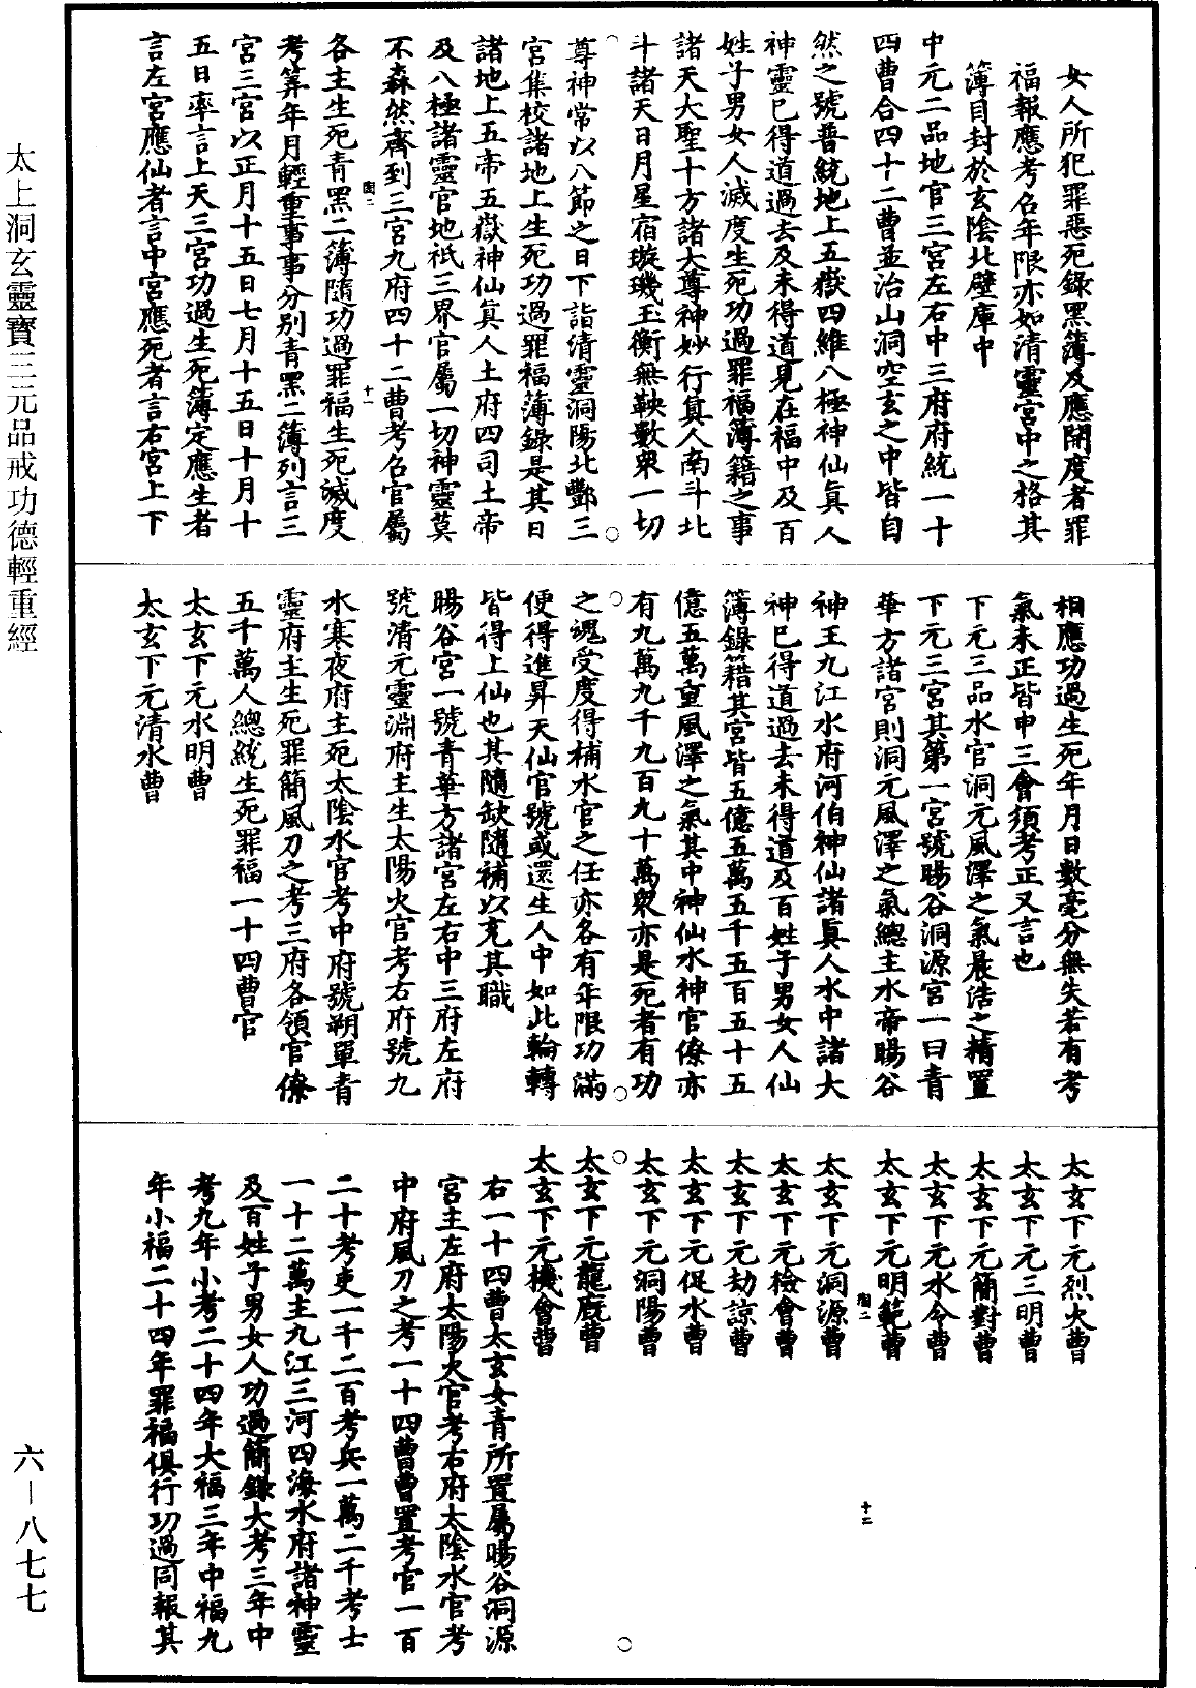 女人所犯罪惡死錄黑簿及應開度者罪
福報應考名年限亦如清靈宮中之格其
簿目封於玄陰北壁庫中
中元二品地官三宮左右中三府府統一十
四曹合四十二曹並治山洞空玄之中皆自
然之號普統地上五嶽四維八極神仙真人
神靈已得道過去及未得道見在福中及百
姓子男女人滅度生死功過罪福簿籍之事
諸天大聖十方諸大尊神妙行真人南斗北
斗諸天日月星宿璇璣玉衡無鞅數眾一切
尊神常以八節之日下詣清靈洞陽北酆三
宮集校諸地上生死功過罪福簿錄是其日
諸地上五帝五嶽神仙真人土府四司土帝
及八極諸靈官地祇三界官屬一切神靈莫
不森然齊到三宮九府四十二曹考召官屬
陶二 十一
各主生死青黑二簿隨功過罪福生死滅度
考筭年月輕重事事分別青黑二簿列言三
宮三宮以正月十五日七月十五日十月十
五日率言上天三宮功過生死簿定應生者
言左宮應仙者言中宮應死者言右宮上下
相應功過生死年月日數毫分無失若有考
氣未正皆申三會須考正又言也
下元三品水官洞元風澤之氣晨浩之精置
下元三宮其第一宮號暘谷洞源宮一曰青
華方諸宮則洞元風澤之氣總主水帝暘谷
神王九江水府河伯神仙諸真人水中諸大
神已得道過去未得道及百姓子男女人仙
簿錄籍其宮皆五億五萬五千五百五十五
億五萬重風澤之氣其中神仙水神官僚亦
有九萬九千九百九十萬眾亦是死者有功
之魂受度得補水官之任亦各有年限功滿
便得進昇天仙官號或還生人中如此輪轉
皆得上仙也其隨缺隨補以充其職
暘谷宮一號青華方諸宮左右中三府左府
號清元靈淵府主生太陽火官考右府號九
水寒夜府主死太陰水官考中府號朔單青
靈府主生死罪簡風刀之考三府各領官僚
五千萬人總統生死罪福一十四曹官
太玄下元水明曹
太玄下元清水曹
太玄下元烈火曹
太玄下元三明曹
太玄下元簡對曹
太玄下元水令曹
太玄下元明範曹
陶二 十二
太玄下元洞源曹
太玄下元檢會曹
太玄下元劫諒曹
太玄下元促水曹
太玄下元洞陽曹
太玄下元龍廄曹
太玄下元機會曹
右一十四曹太玄女青所置屬暘谷洞源
宮主左府太陽火官考右府太陰水官考
中府風刀之考一十四曹曹置考官一百
二十考吏一千二百考兵一萬二千考士
一十二萬主九江三河四海水府諸神靈
及百姓子男女人功過簡錄大考三年中
考九年小考二十四年大福三年中福九
年小福二十四年罪福俱行功過同報其
太上洞玄靈寶三元品戒功德輕重經
六—八七七